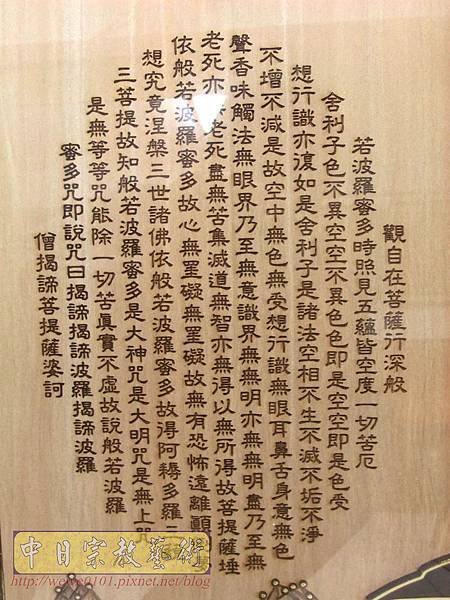 觀自在菩薩行深般
若波羅蜜多時照見五蘊皆空度一切苦厄
舍利子色不異空空不異色色即是空空即是色受
想行識亦復如是舍利子是諸法空相不生不滅不垢不淨
不增不減是故空中無色無受想行識無眼耳鼻舌身意無色
聲香味觸法無眼界乃至無意識界無無明亦無無明盡乃至無
老死亦無老死盡無苦集滅道無智亦無得以無所得故菩提薩埵
依般若波羅蜜多故心無罣礙無罣礙故無有恐怖遠離顛
想究竟涅槃三世諸佛依般若波羅蜜多故得阿耨多羅三
三菩提故知般若波羅蜜多是大神咒是大明咒是無上咒
是無等等咒能除一切苦真實不虛故說般若波羅
蜜多咒即說咒曰揭諦揭諦波羅揭諦波羅
僧揭諦菩提薩婆訶
中日宗教藝術
http://wewe0101.pixnet.net/blog